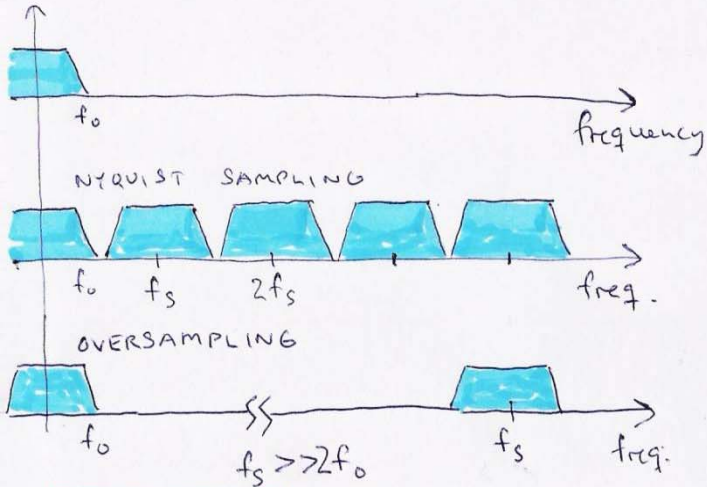 f₀
frequency
NYQUIST SAMPLING
f₀ fₛ 2fₛ freq.
OVERSAMPLING
f₀ fₛ freq.
fₛ >> 2f₀